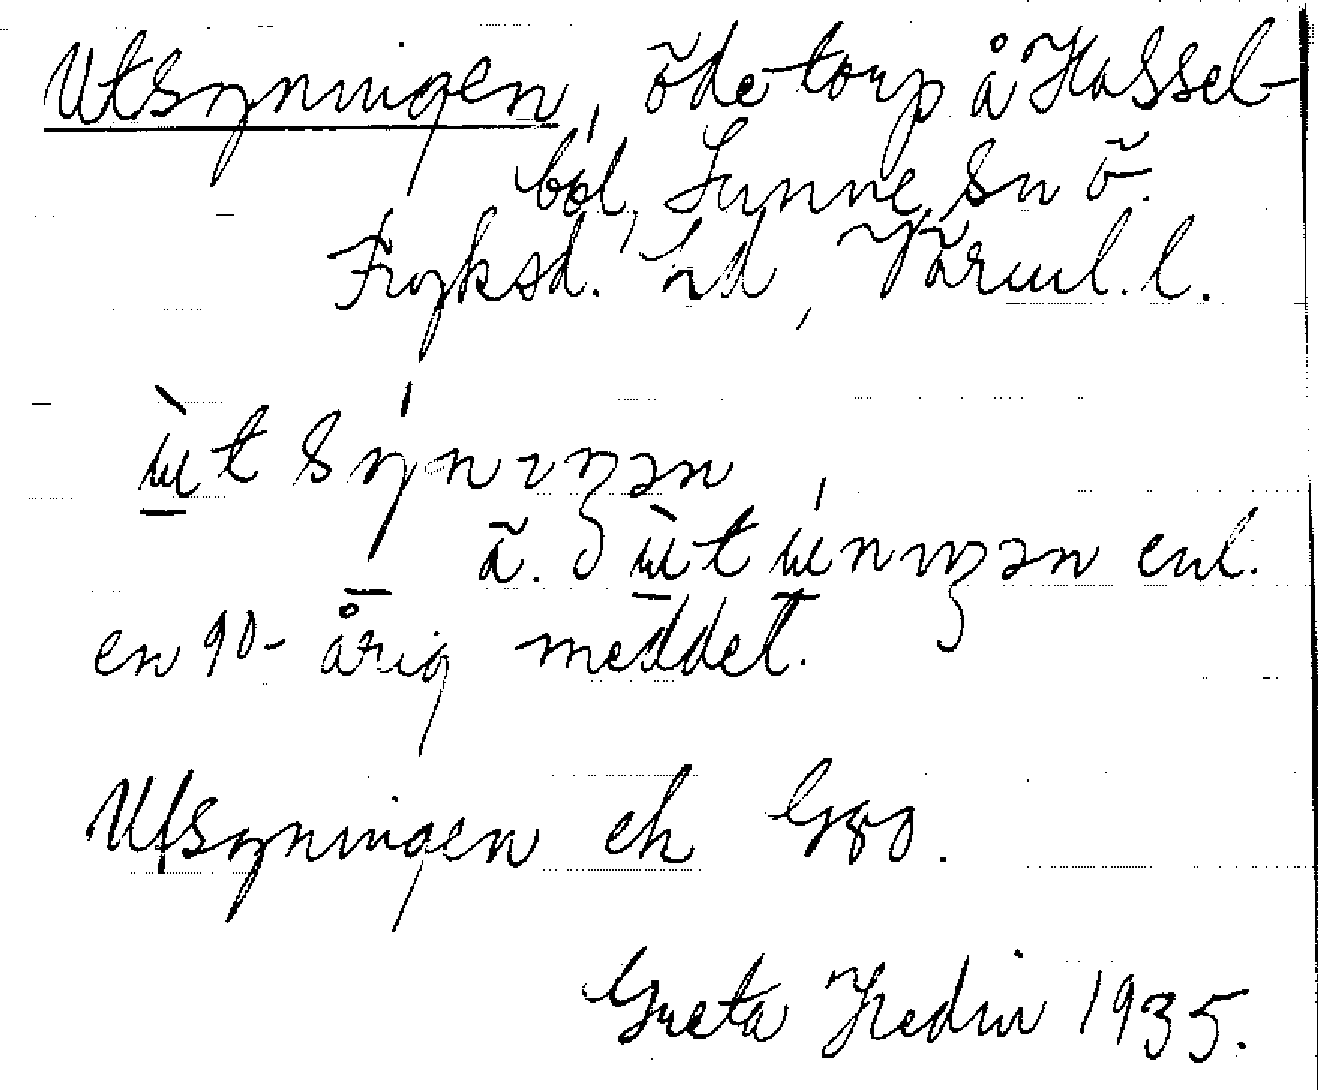 Utsyningen, öde torp å Hassel-
bol, Sunne sn ö.
Fryksd. hd, Värml. l.
ùtsýniŋən
ä. ùtúniŋən enl.
en 90-årig meddel.
Utsyningen ek G80.
Greta Hedin 1935.